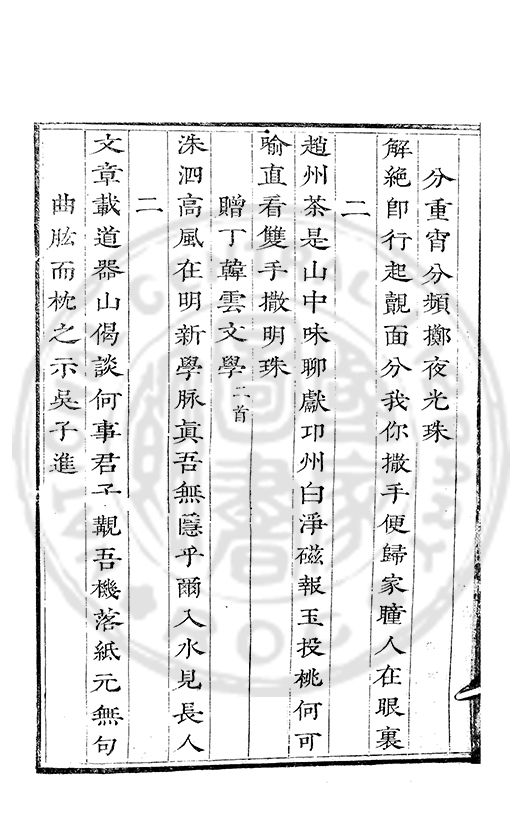 分重宵分頻擲夜光珠
解絕卽行起覿面分我你撒手便歸家瞳人在眼裏
二
趙州茶是山中味聊獻卭州白淨磁報玉投桃何可
喻直看雙手撒明珠
贈丁韓雲文學二首
洙泗高風在明新學脉眞吾無隱乎爾入水見長人
二
文章載道器山偈談何事君子觀吾機落紙元無句
曲肱而枕之示吳子進